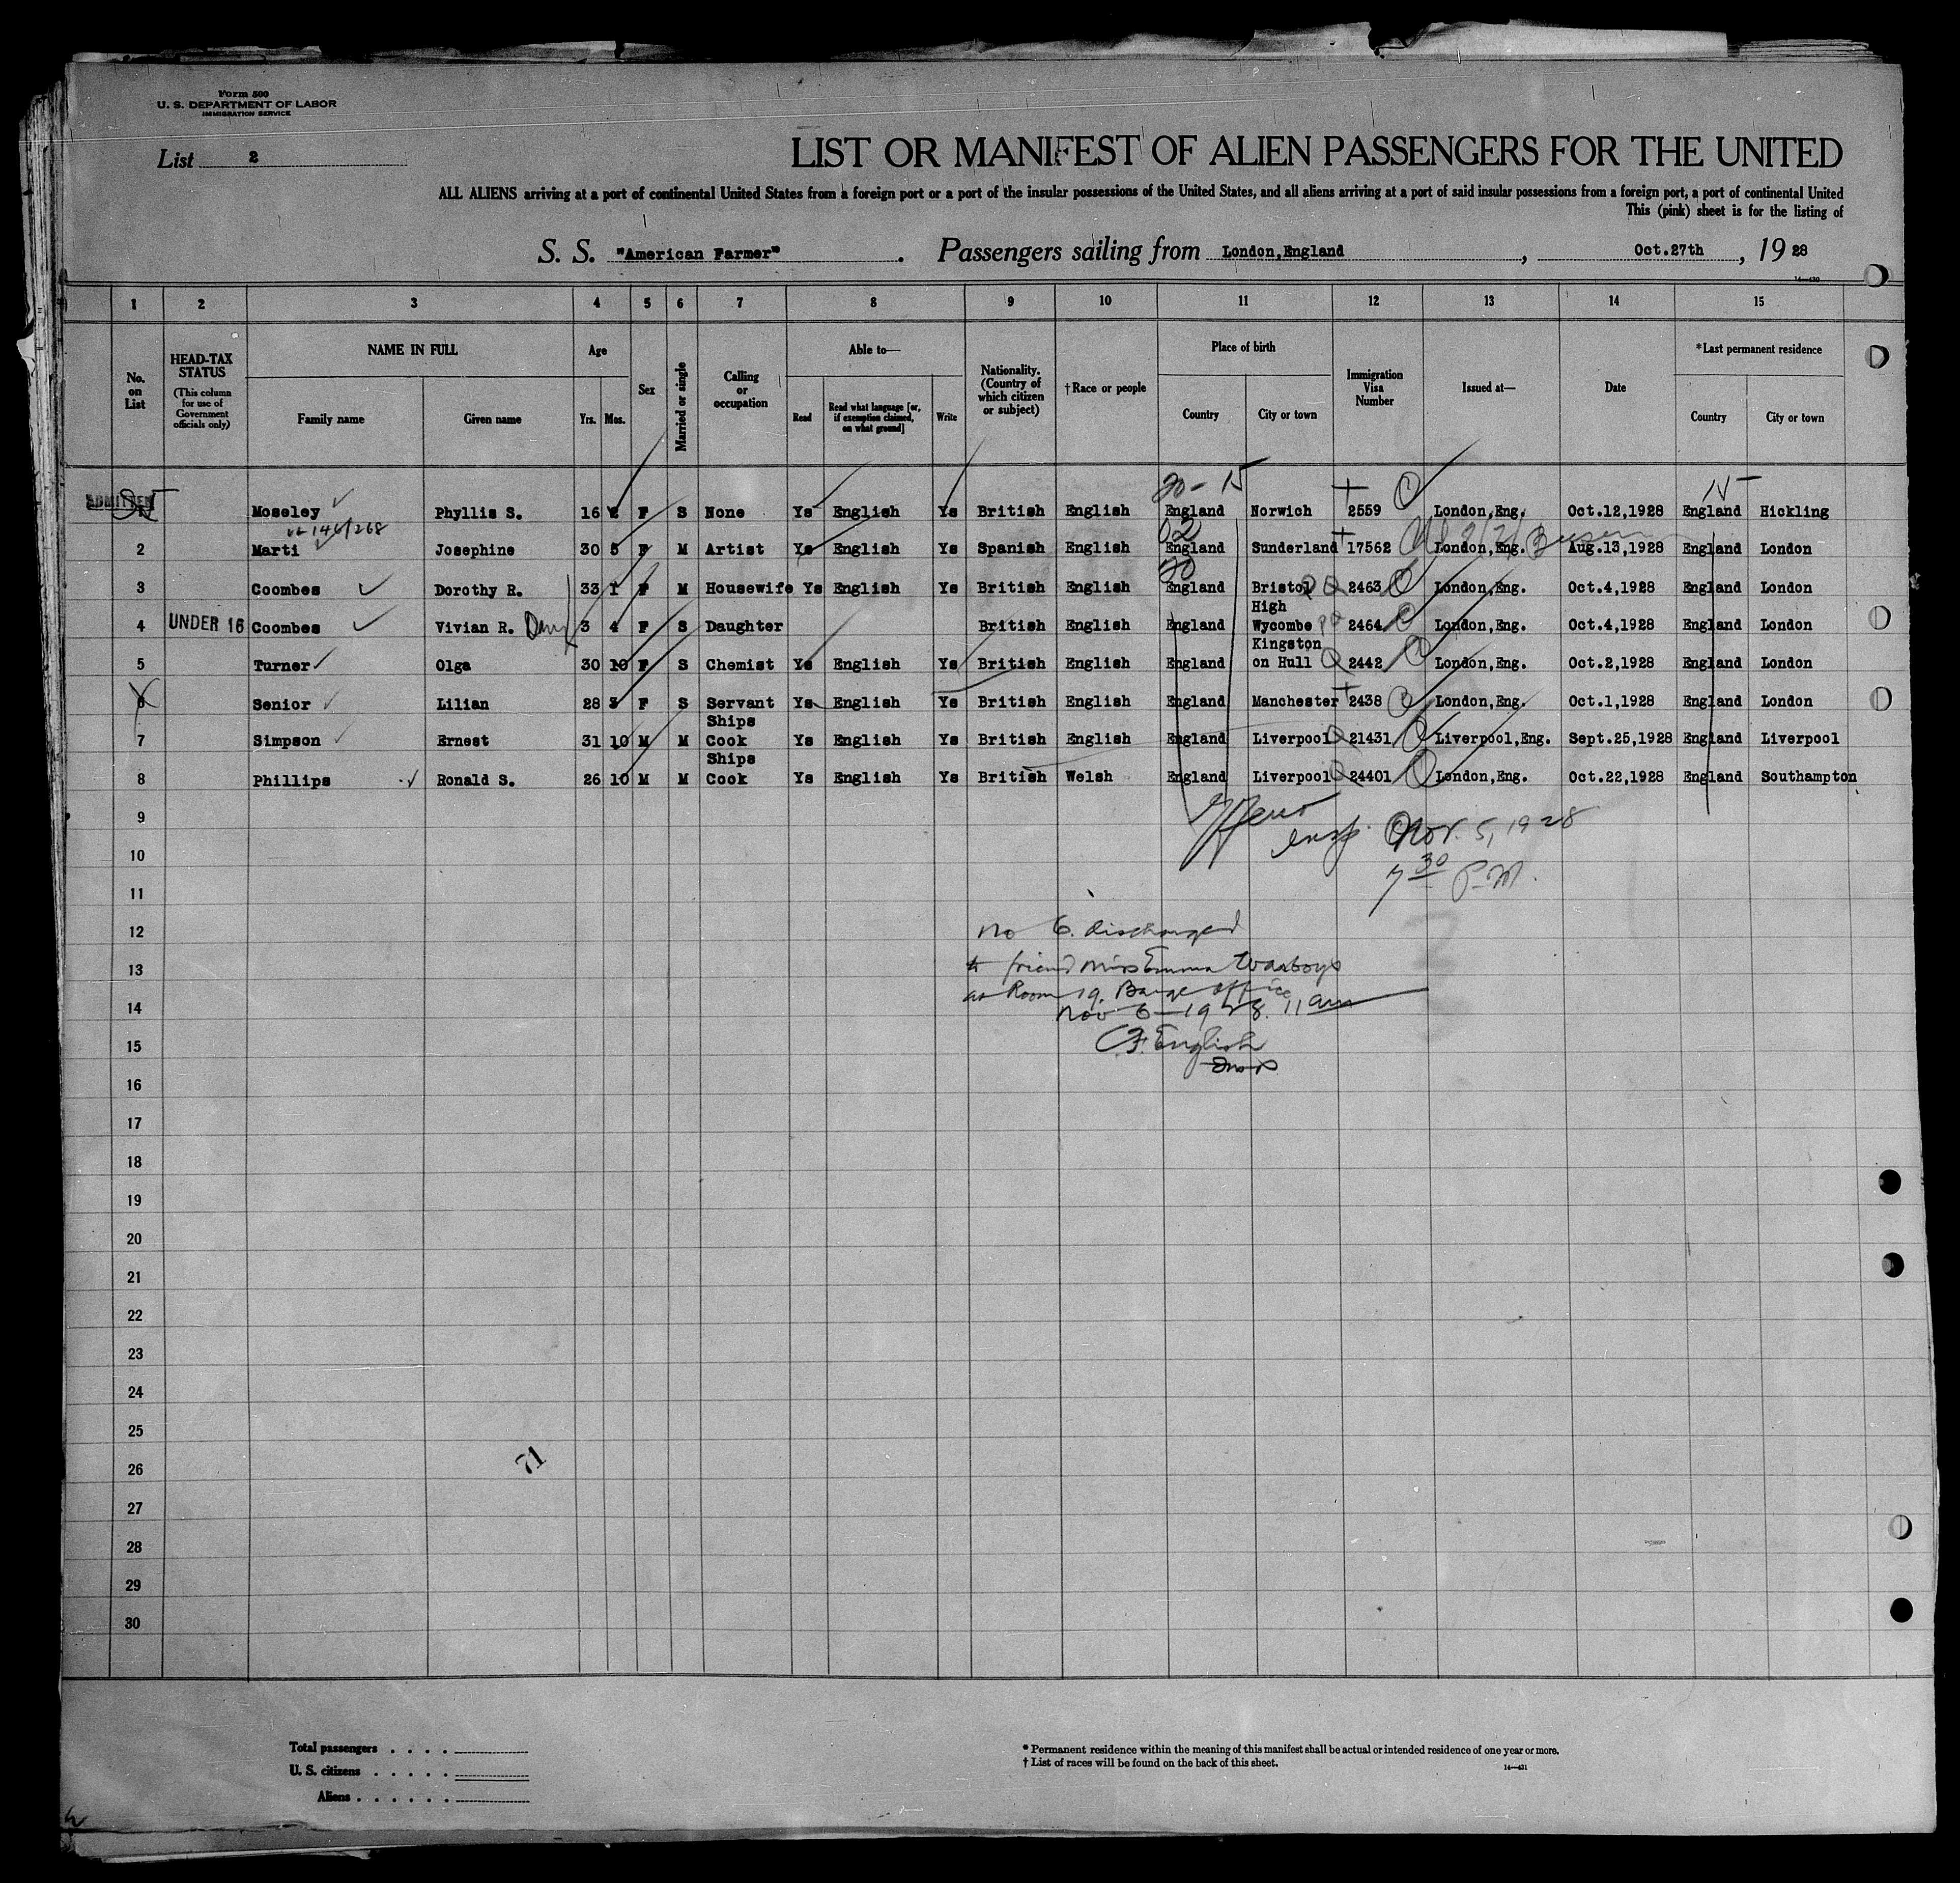 Form 500
U. S. DEPARTMENT OF LABOR
IMMIGRATION SERVICE
List 2
LIST OR MANIFEST OF ALIEN PASSENGERS FOR THE UNITED
ALL ALIENS arriving at a port of continental United States from a foreign port or a port of the insular possessions of the United States, and all aliens arriving at a port of said insular possessions from a foreign port, a port of continental United
This (pink) sheet is for the listing of
S. S. "American Farmer". Passengers sailing from London,England, Oct.27th, 19 28
14—430
1 2 3 4 5 6 7 8 9 10 11 12 13 14 15
No. on List
HEAD-TAX STATUS
(This column for use of Government officials only)
NAME IN FULL
Family name Given name
Age
Yrs. Mos.
Sex
Married or single
Calling or occupation
Able to—
Read
Read what language [or, if exemption claimed, on what ground]
Write
Nationality. (Country of which citizen or subject)
†Race or people
Place of birth
Country City or town
Immigration Visa Number
Issued at—
Date
*Last permanent residence
Country City or town
20 - 15 15
ADMITTED Moseley Phyllis S. 16 2 F S None Ys English Ys British English England Norwich 2559 London,Eng. Oct.12,1928 England Hickling
146/268 02
2 Marti Josephine 30 5 F M Artist Ys English Ys Spanish English England Sunderland 17562 London,Eng. Aug.13,1928 England London
20
3 Coombes Dorothy R. 33 1 F M Housewife Ys English Ys British English England Bristol 2463 London,Eng. Oct.4,1928 England London
4 UNDER 16 Coombes Vivian R. 3 4 F S Daughter British English England High Wycombe 2464 London,Eng. Oct.4,1928 England London
5 Turner Olga 30 10 F S Chemist Ys English Ys British English England Kingston on Hull 2442 London,Eng. Oct.2,1928 England London
6 Senior Lilian 28 3 F S Servant Ys English Ys British English England Manchester 2438 London,Eng. Oct.1,1928 England London
7 Simpson Ernest 31 10 M M Ships Cook Ys English Ys British English England Liverpool 21431 Liverpool,Eng. Sept.25,1928 England Liverpool
8 Phillips Ronald S. 26 10 M M Ships Cook Ys English Ys British Welsh England Liverpool 24401 London,Eng. Oct.22,1928 England Southampton
9
insp. Nov. 5, 1928
10
7 30 P.M.
11
12
No 6. discharged
13
to friend Miss Emma Warboys
at Room 19. Barge office
14
Nov 6-1928. 11 am
15
English
Insp
16
17
18
19
20
21
22
23
24
25
26
71
27
28
29
30
Total passengers . . . .
U. S. citizens . . . . .
Aliens . . . . . .
* Permanent residence within the meaning of this manifest shall be actual or intended residence of one year or more.
† List of races will be found on the back of this sheet.
14—431